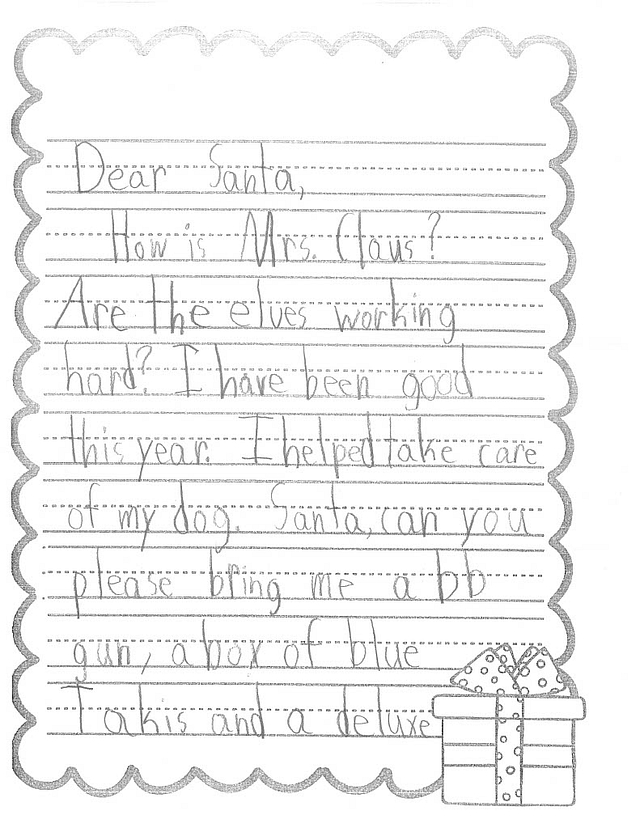 Dear Santa,
How is Mrs. Claus?
Are the elves working
hard? I have been good
this year. I helped take care
of my dog. Santa, can you
please bring me a bb
gun, a box of blue
Takis and a deluxe